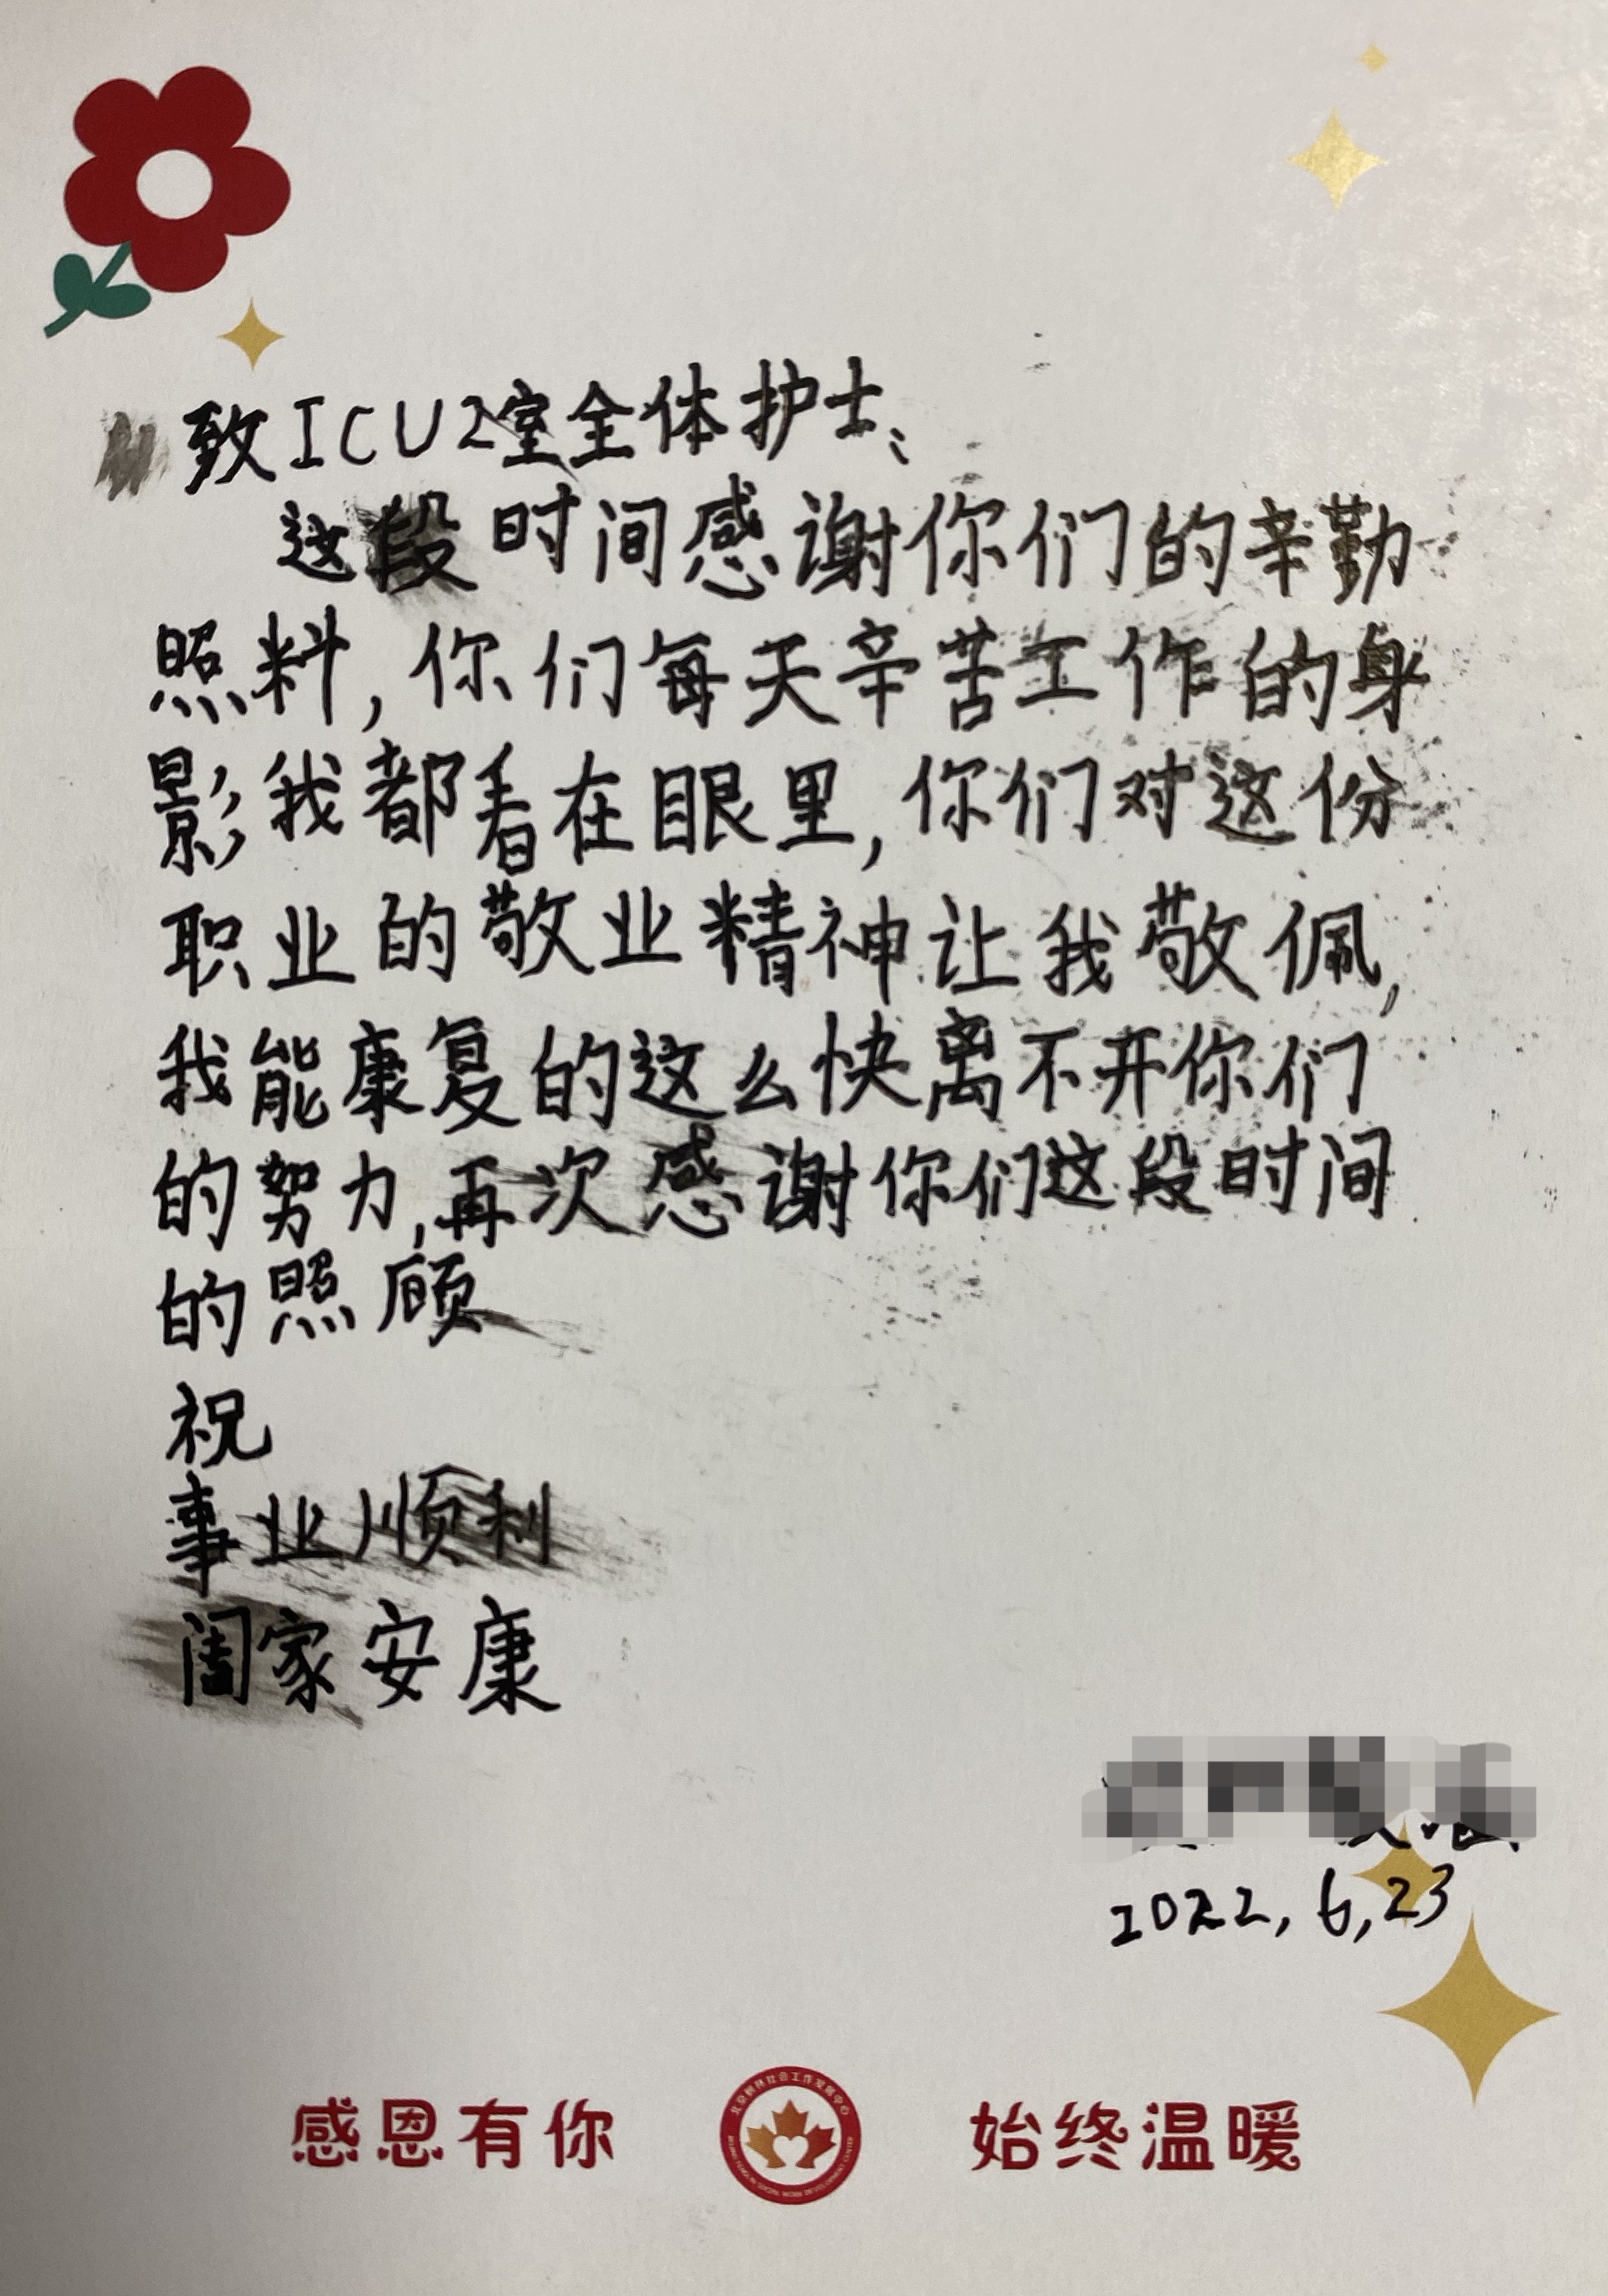 致ICU2室全体护士、
这段时间感谢你们的辛勤
照料,你们每天辛苦工作的身
影我都看在眼里,你们对这份
职业的敬业精神让我敬佩,
我能康复的这么快离不开你们
的努力,再次感谢你们这段时间
的照顾
祝
事业顺利
阖家安康
2022,6,23
感恩有你
始终温暖